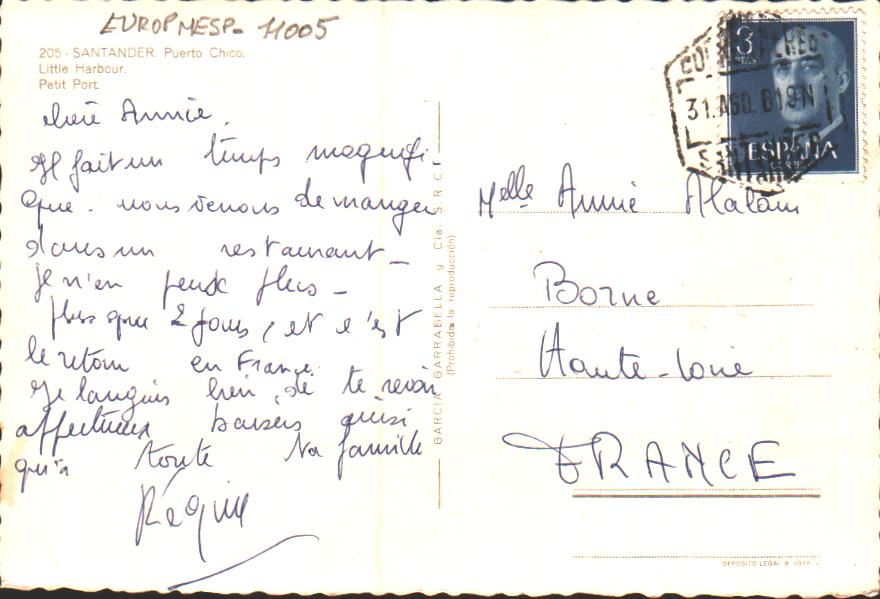 EUROP NESP- 11005
205 - SANTANDER. Puerto Chico.
Little Harbour.
Petit Port.
chère Annie.
Il fait un temps magnifi-
que. nous venons de manger
dans un restaurant -
je n'en peux plus -
plus que 2 jours, et c'est
le retour en France.
Je languis bien de te revoir
affectueux baisers ainsi
qu'à toute ta famille
Régine
GARCIA GARRABELLA y Cia. S.R.C.
(Prohibida la reproducción)
3
PTAS
CORREO AEREO
31.AGO.619N
SANTANDER
ESPAÑA
Melle Annie Alalain
Borne
Haute-Loire
FRANCE
DEPOSITO LEGAL B.